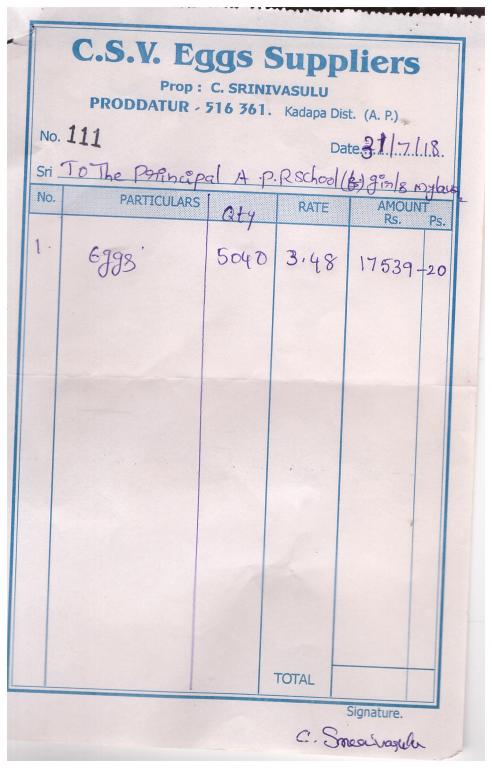 C.S.V. Eggs Suppliers
Prop : C. SRINIVASULU
PRODDATUR - 516 361. Kadapa Dist. (A. P.)
No. 111
Date 31/7/18.
Sri To The Principal A.P.R School girls
No. PARTICULARS Qty RATE AMOUNT
Rs. Ps.
1. Eggs 5040 3.48 17539-20
TOTAL
Signature.
C. Sreenivasulu